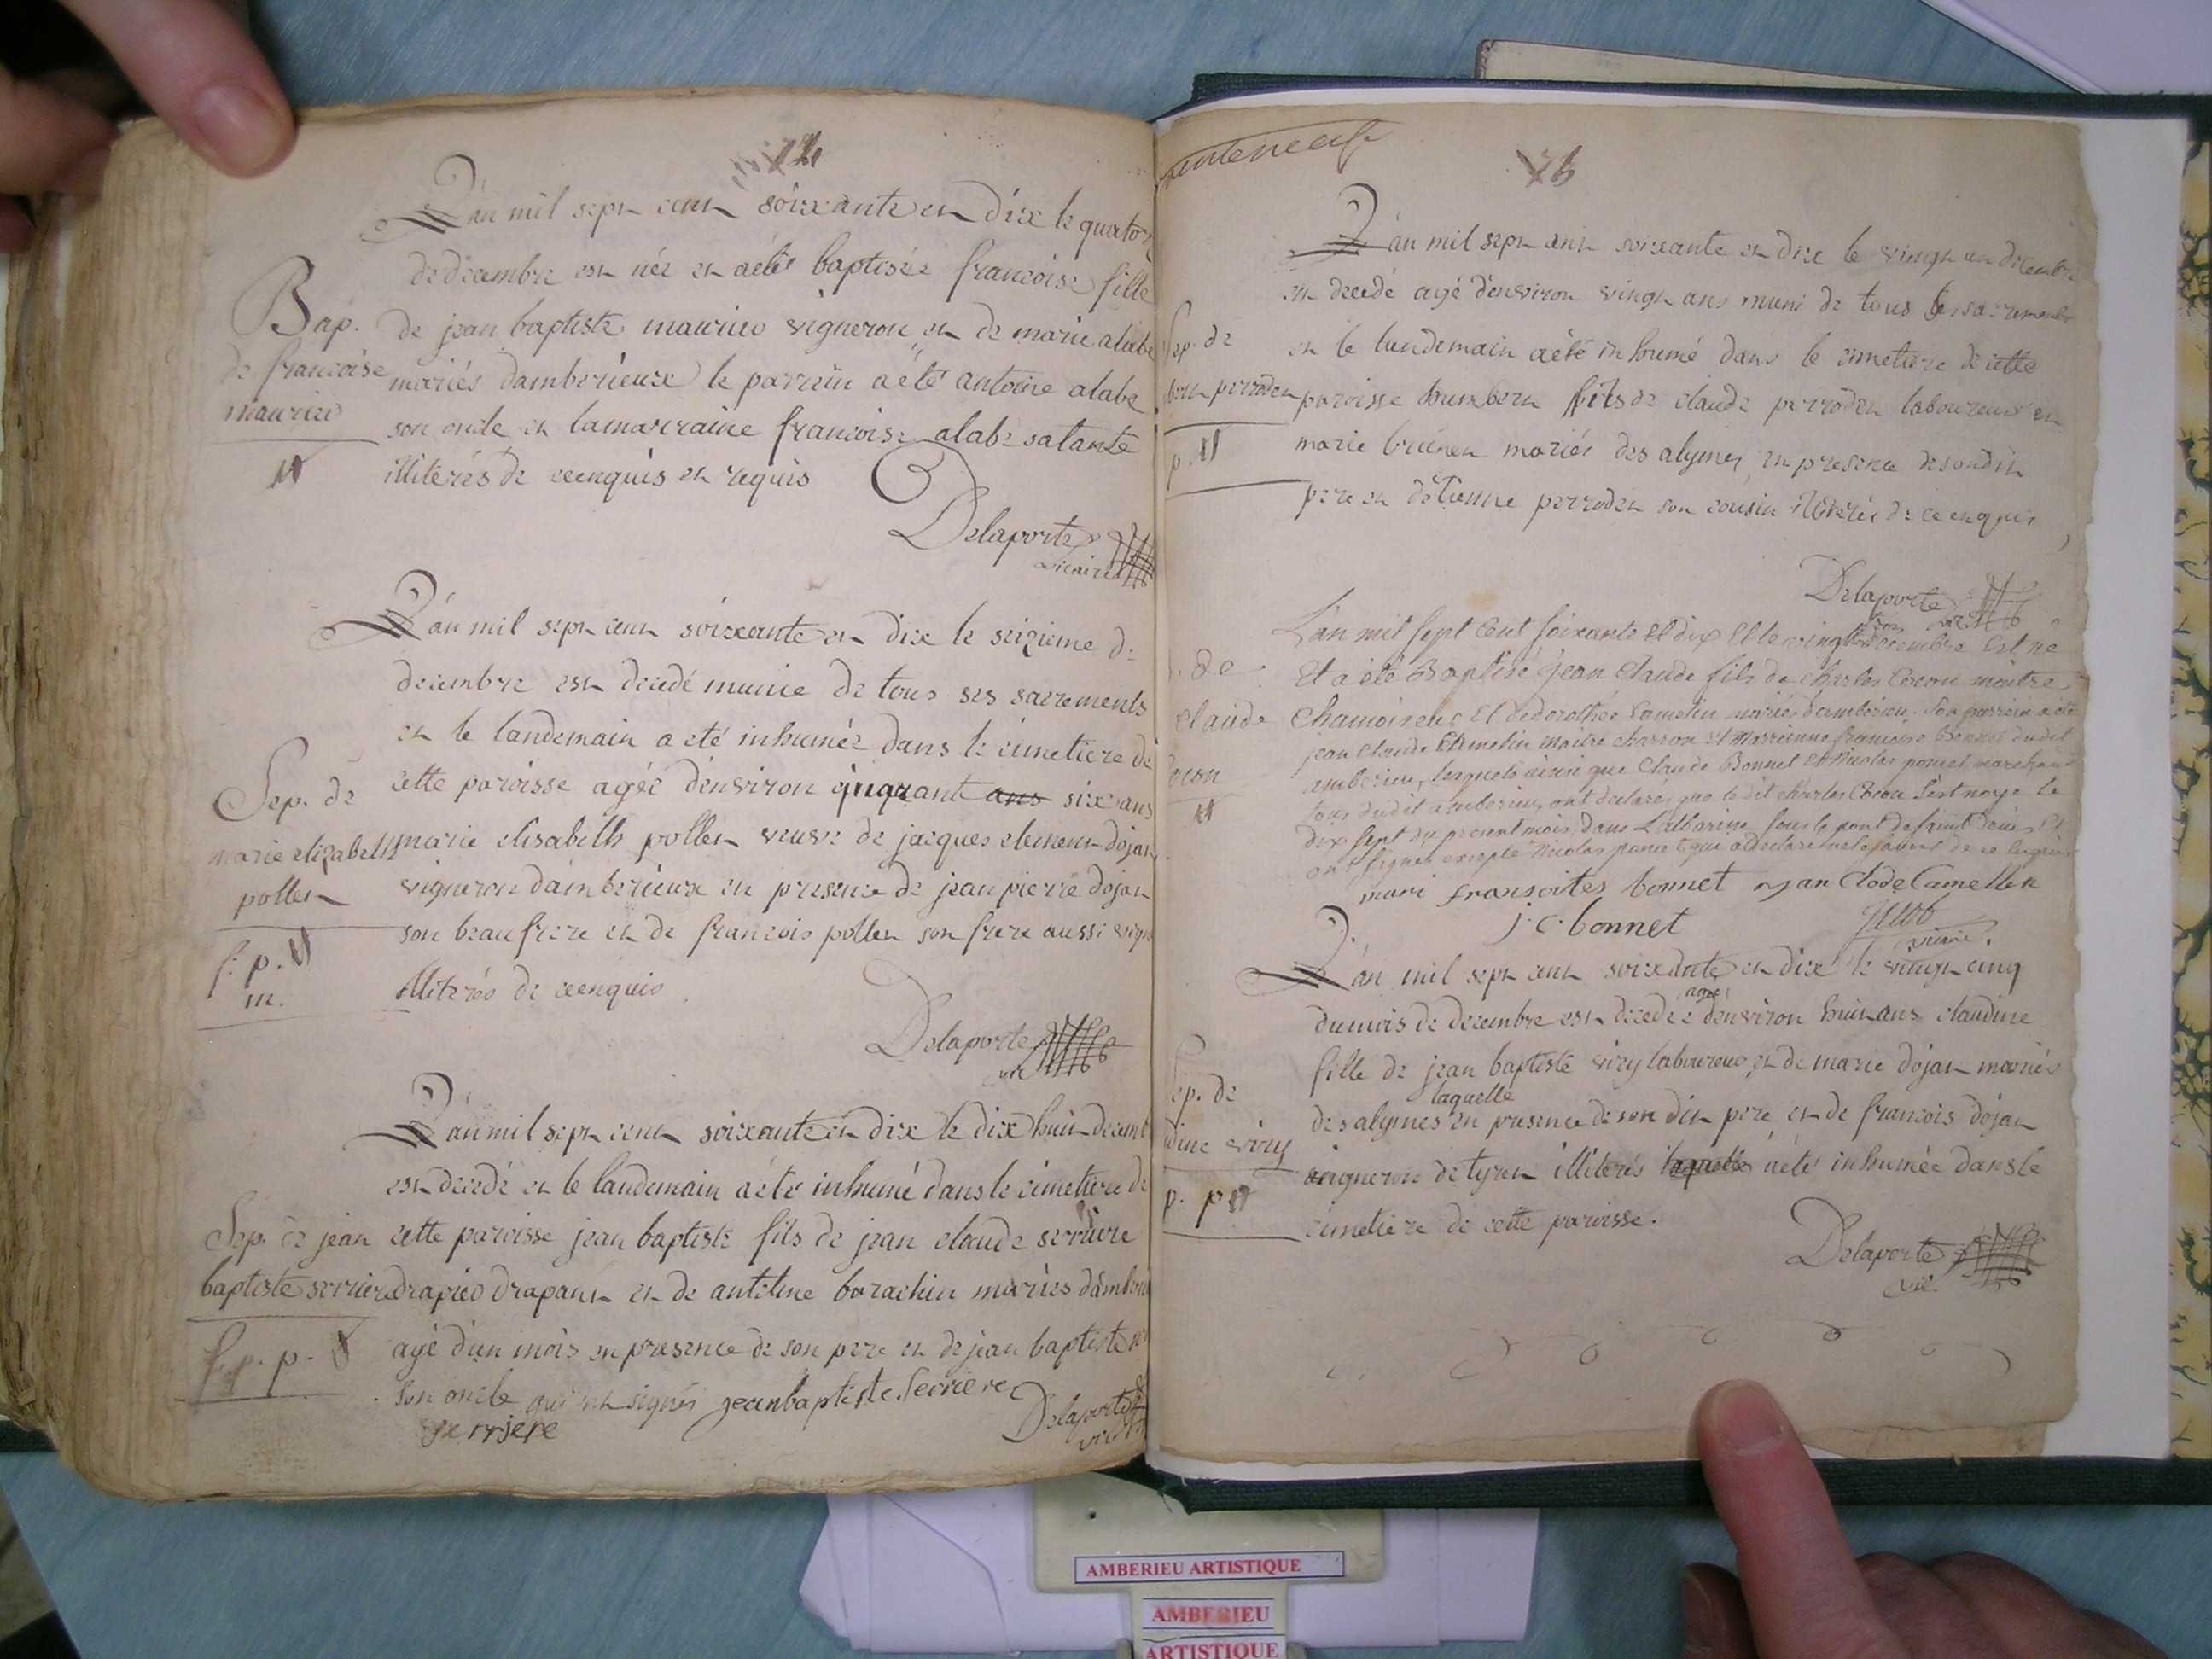 L'an mil sept cent soixante et dix le quator
de decembre est née et a été baptisée francoise fille
Bap. de francoise maurice
de jean baptiste maurice vigneron et de marie alabe
mariés damberieux le parrein a été antoine alabe
son oncle et la marraine francoise alabe sa tante
illiterés de ce enquis et requis
Delaporte
vicaire
L'an mil sept cent soixante et dix le seizieme de
decembre est decedé munie de tous ses sacrements
et le landemain a eté inhumée dans le cimetiere de
Sep. de marie elizabeth pollet
cette paroisse agée denviron cinquant ans six ans
marie elisabeth pollet veuve de jacques clement dojat
vigneron damberieux en presence de jean pierre dojat
son beaufrere et de francois pollet son frere aussi vign
f. p.
m.
illiterés de ce enquis
Delaporte
vic
L'an mil sept cent soixante et dix le dix huit decemb
est decedé et le landemain a été inhumé dans le cimetiere de
Sep. de jean baptiste serriere
cette paroisse jean baptiste fils de jean claude serriere
drapier drapant et de antelme barachin mariés dambé
f. p. p.
agé d'un mois en presence de son pere et de jean baptiste
son oncle qui ont signés jeanbaptiste Serriere
serrjere
Delaporte
vic
L'an mil sept cent soixante et dix le vingt un decembre
est decedé agé d'environ vingt ans muni de tous les sacrements
Sep. de
bert perrodet
et le lundemain a été inhumé dans le cimetiere de cette
paroisse humbert fils de claude perrodet laboureur et
p.
marie brunet mariés des alymes en presence de son dit
pere et detienne perrodet son cousin illiterés de ce enquis
Delaporte
vic
L'an mil sept cent soixante et dix et le vingt decembre est né
de
claude
et a été Baptisé jean claude fils de charles Cocon maitre
Chamoiseur et de dorothée Camelin mariés damberieu. son parrein a été
jean claude Camelin maitre charron et Marrienne francoise Bonnet dudit
amberieu, lesquels ainsi que Claude Bonnet et Nicolas poncet marchand
tous dudit amberieu, ont declarés que le dit charles Cocon s'est noyé le
dix sept du present mois, dans Lalbarine sous le pont de saint denis et
ont signés excepté Nicolas poncet qui a declaré ne le savoir de ce enquis
mari fransoites bonnet jan Clode Camellein
j. c. bonnet
vicaire.
L'an mil sept cent soixante et dix le vingt cinq
agée
du mois de decembre est decedée denviron huit ans claudine
fille de jean baptiste viry laboureur et de marie dojat mariés
Sep. de
dine viry
laquelle
des alymes en presence de son dit pere et de francois dojat
vigneron de tyret illiterés laquelle a été inhumée dans le
p. p
cimetiere de cette paroisse.
Delaporte
vic
AMBERIEU ARTISTIQUE
AMBERIEU
ARTISTIQUE